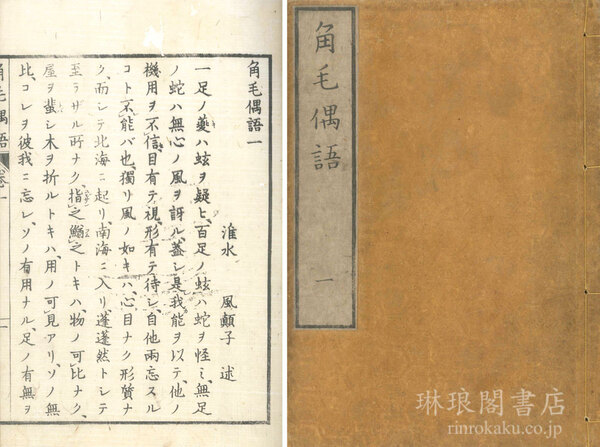 角毛偶語一
淮水 風顛子 述
一足ノ夔ハ蚿ヲ疑ヒ、百足ノ蚿ハ蛇ヲ怪ミ、無足
ノ蛇ハ無心ノ風ヲ訝ル、蓋シ是我能ヲ以テ、他ノ
機用ヲ不信、目有テ視、形有テ待シ、自他兩忘スル
コト不能バ也、獨リ風ノ如キハ、心目ナク形質ナ
ク、而シテ北海ニ起リ、南海ニ入リ蓬蓬然トシテ
至ラザル所ナク、指之鰌之トキハ、物ノ可比ナク、
屋ヲ蜚シ木ヲ折ルトキハ、用ノ可見アリ、ソノ無
比、コレヲ彼我ニ忘レ、ソノ有用ナル、足ノ有無ヲ
角毛偶語 卷一
角毛偶語 一
琳琅閣書店
rinrokaku.co.jp